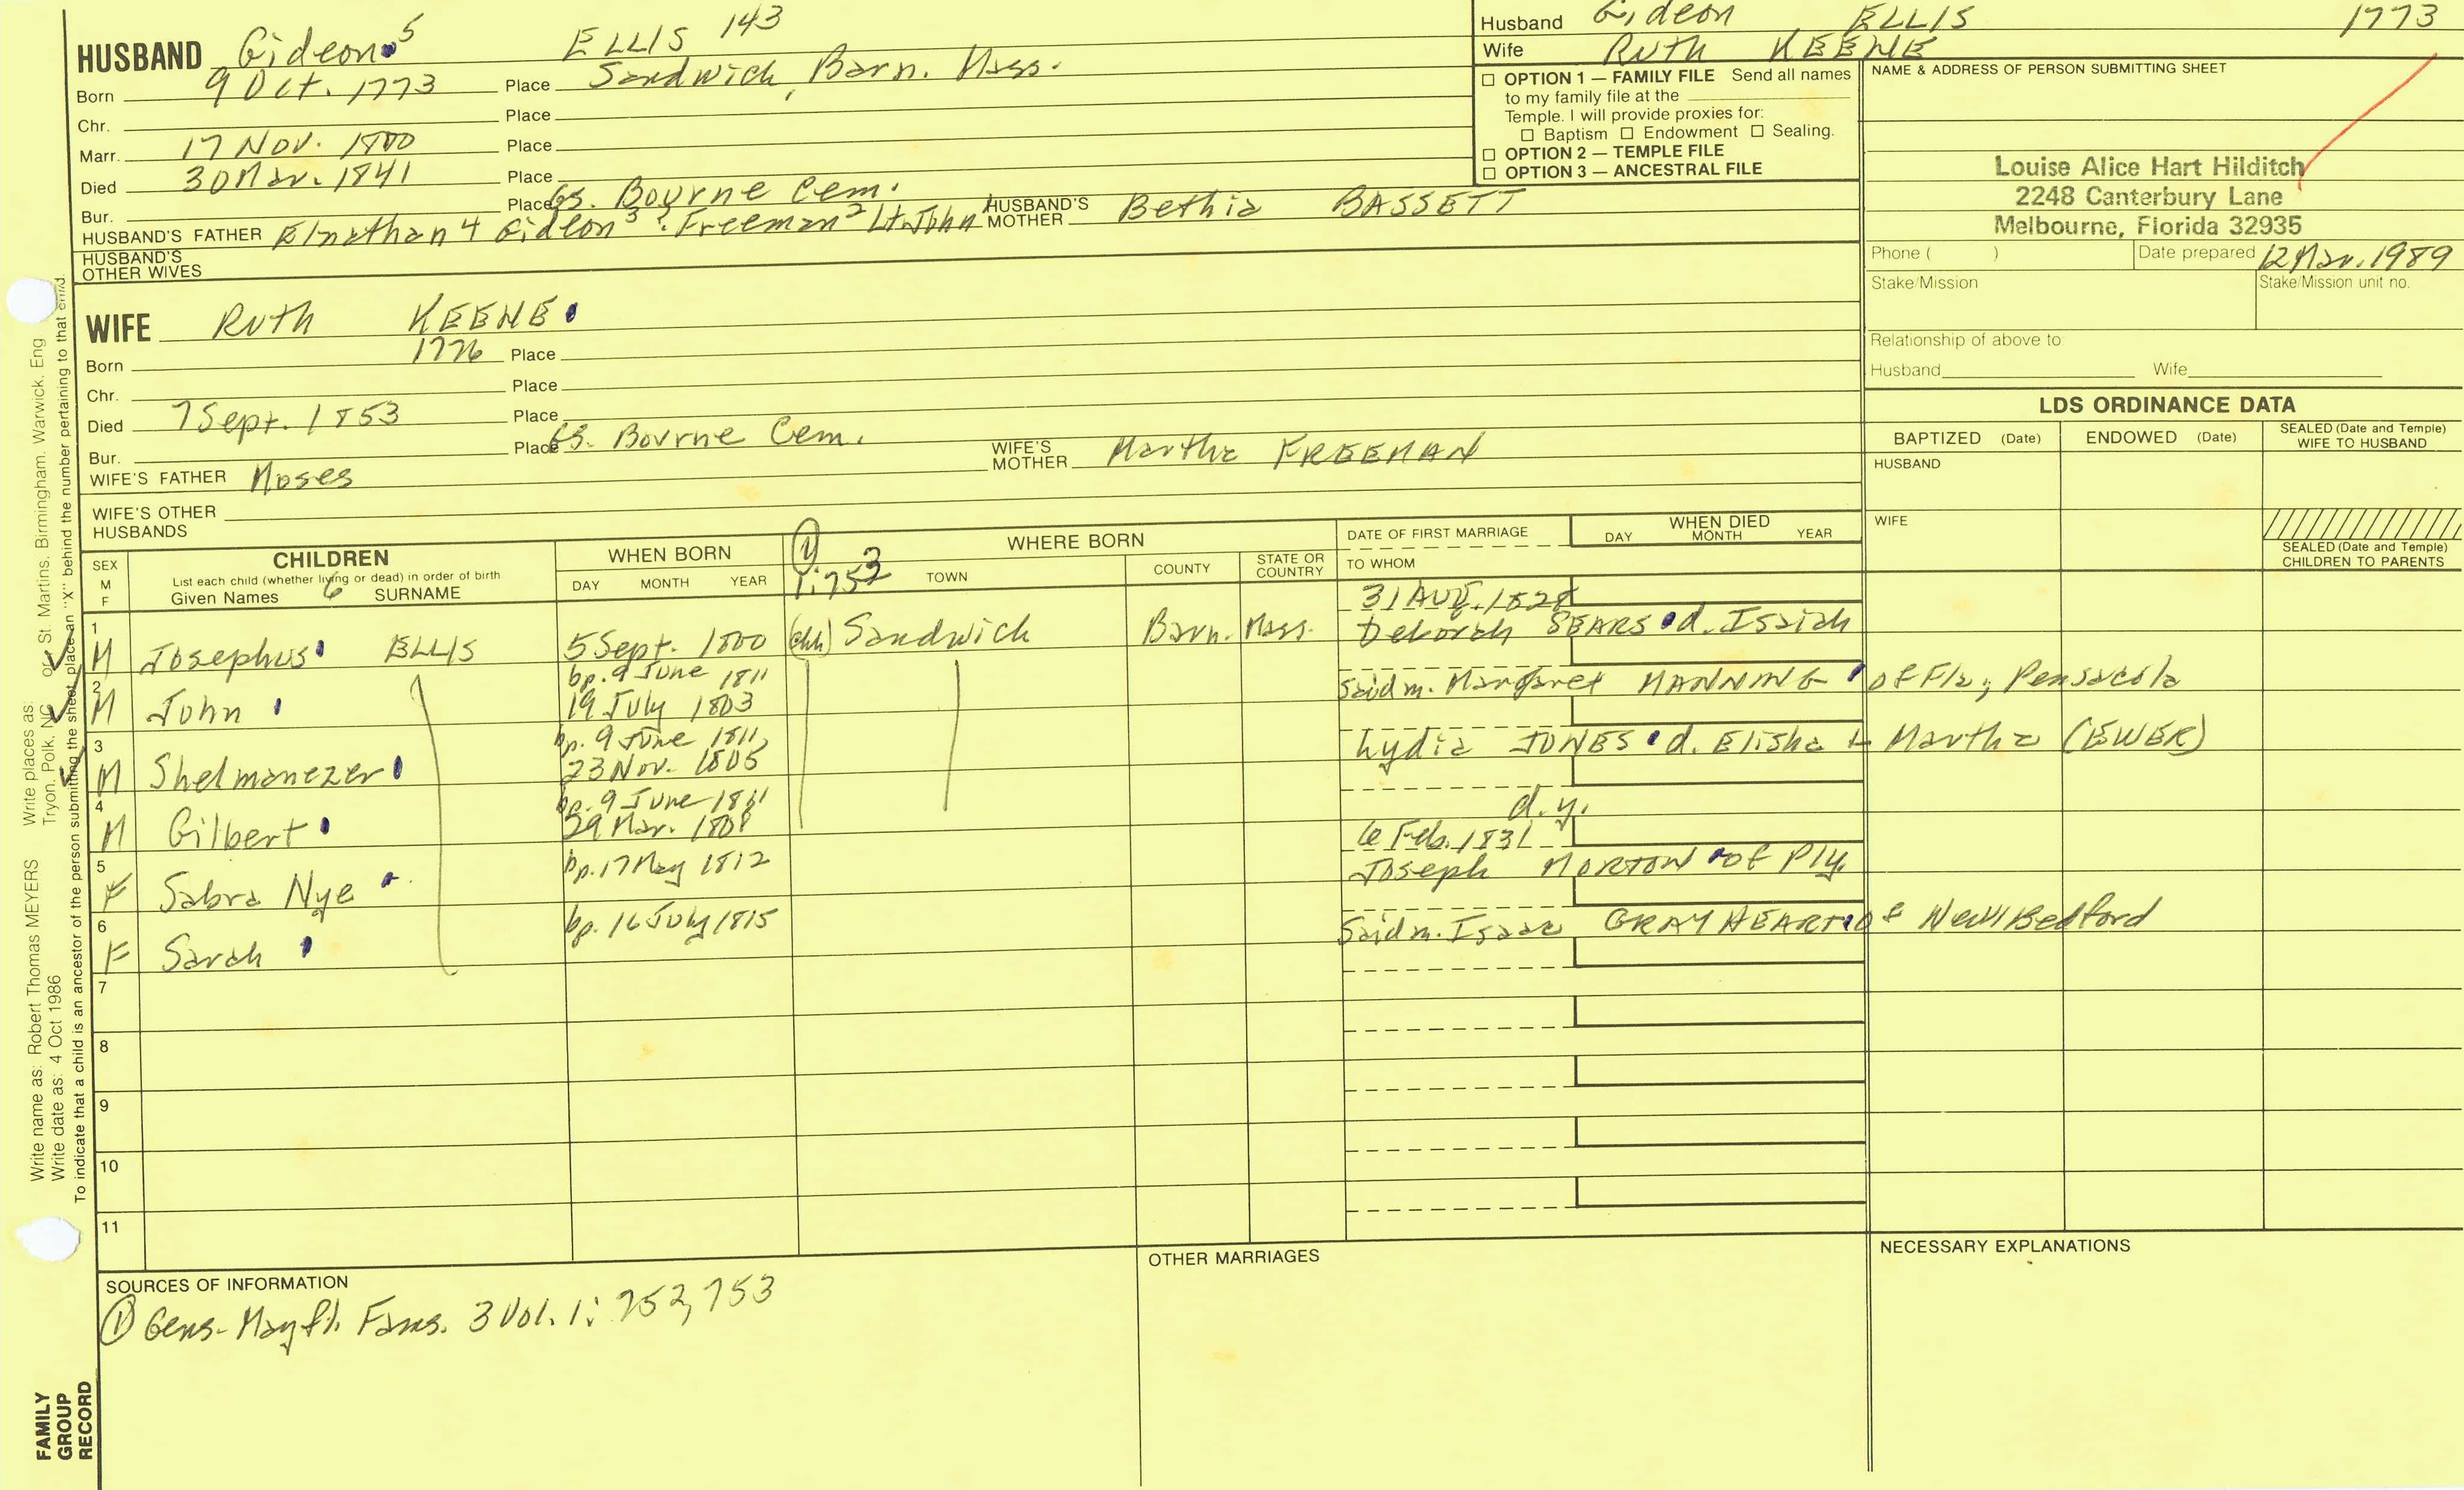 HUSBAND Gideon 5 ELLIS 143
Born 9 Oct. 1773 Place Sandwich, Barn. Mass.
Chr. Place
Marr. 17 Nov. 1800 Place
Died 30 Mar. 1841 Place
Bur. Place Gs. Bourne Cem.
HUSBAND'S FATHER Elnathan 4 Gideon 3? Freeman 2 Lt. John HUSBAND'S MOTHER Bethia BASSETT
HUSBAND'S OTHER WIVES
Husband Gideon ELLIS 1773
Wife Ruth KEENE
OPTION 1 — FAMILY FILE Send all names
to my family file at the
Temple. I will provide proxies for:
Baptism Endowment Sealing.
OPTION 2 — TEMPLE FILE
OPTION 3 — ANCESTRAL FILE
NAME & ADDRESS OF PERSON SUBMITTING SHEET
Louise Alice Hart Hilditch
2248 Canterbury Lane
Melbourne, Florida 32935
Phone ( ) Date prepared 12 Mar. 1989
Stake/Mission Stake/Mission unit no.
Relationship of above to
Husband Wife
WIFE Ruth KEENE
Born 1776 Place
Chr. Place
Died 7 Sept. 1853 Place
Bur. Place Gs. Bourne Cem.
WIFE'S FATHER Moses WIFE'S MOTHER Martha FREEMAN
WIFE'S OTHER HUSBANDS
LDS ORDINANCE DATA
BAPTIZED (Date) ENDOWED (Date) SEALED (Date and Temple) WIFE TO HUSBAND
HUSBAND
WIFE
SEALED (Date and Temple) CHILDREN TO PARENTS
SEX M F
CHILDREN
List each child (whether living or dead) in order of birth
Given Names 6 SURNAME
WHEN BORN
DAY MONTH YEAR
(1) 1:753
WHERE BORN
TOWN COUNTY STATE OR COUNTRY
DATE OF FIRST MARRIAGE
TO WHOM
WHEN DIED
DAY MONTH YEAR
31 Aug. 1828
1 M Josephus ELLIS 5 Sept. 1800 (chh) Sandwich Barn. Mass. Deborah SEARS d. Isaiah
bp. 9 June 1811
2 M John 19 July 1803 Said m. Margaret MANNING of Fla; Pensacola
bp. 9 June 1811
3 M Shelmanezer 23 Nov. 1805 Lydia JONES d. Elisha & Martha (EWER)
bp. 9 June 1811
4 M Gilbert 29 Mar. 1808 d.y.
6 Feb. 1831
5 F Sabra Nye bp. 17 May 1812 Joseph MORTON of Ply.
6 F Sarah bp. 16 July 1815 Said m. Isaac GRAYHEART of New Bedford
7
8
9
10
11
SOURCES OF INFORMATION
(1) Gens-Mayfl. Fams. 3 Vol. 1: 752, 753
OTHER MARRIAGES
NECESSARY EXPLANATIONS
Write name as: Robert Thomas MEYERS Write places as: Tryon, Polk, NC or St. Martins, Birmingham, Warwick, Eng
Write date as: 4 Oct 1986
To indicate that a child is an ancestor of the person submitting the sheet, place an "X" behind the number pertaining to that child.
FAMILY
GROUP
RECORD